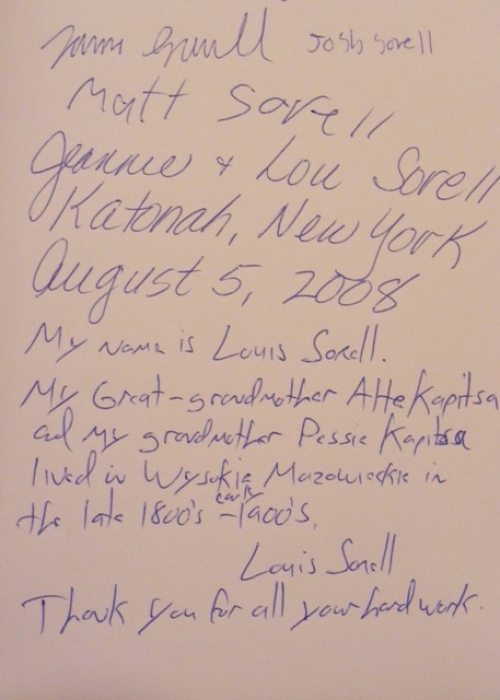 Sorell Josh Sorell
Matt Sorell
Jeannie + Lou Sorell
Katonah, New York
August 5, 2008
My name is Louis Sorell.
My Great-grandmother Atte Kapitsa
and my grandmother Pessie Kapitsa
lived in Wysokie Mazowieckie in
the late 1800's - early 1900's.
Louis Sorell
Thank you for all your hard work.